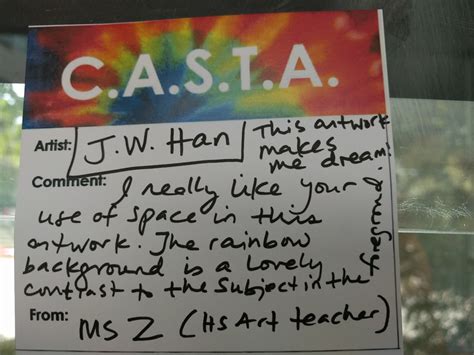 C.A.S.T.A.
Artist: J.W. Han
This artwork
makes
me dream!
Comment: I really like your
use of space in this
artwork. The rainbow
background is a lovely
contrast to the subject in the
foreground.
From: MS Z (HS Art teacher)